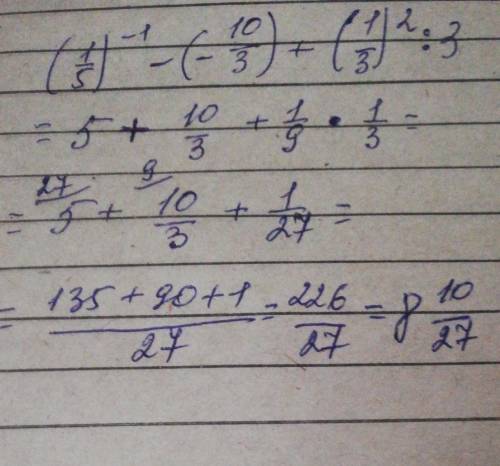 (1/5)^-1 - (- 10/3) + (1/3)^2 : 3
= 5 + 10/3 + 1/9 · 1/3 =
27 9
= 5 + 10/3 + 1/27 =
= (135 + 90 + 1)/27 = 226/27 = 8 10/27